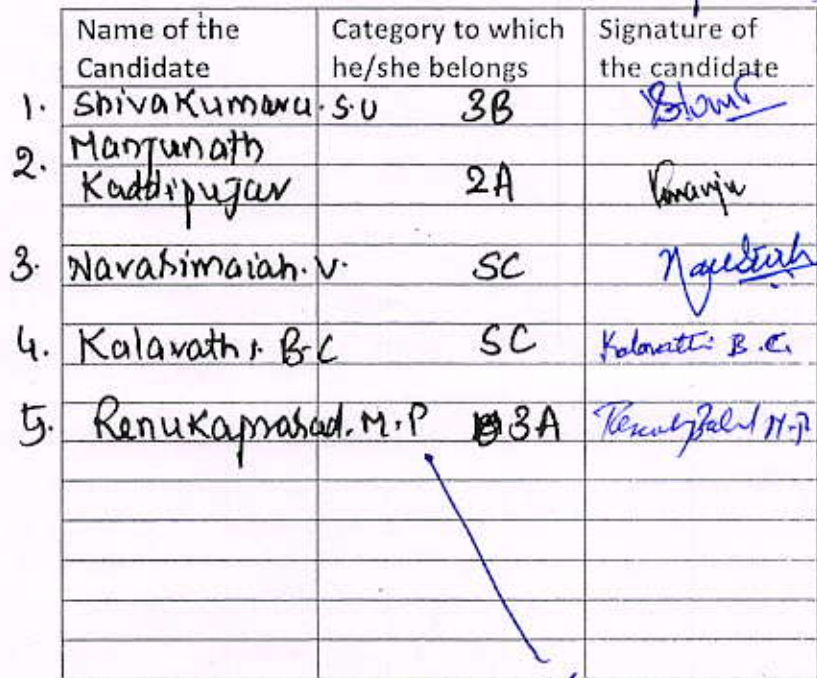 Name of the Candidate Category to which he/she belongs Signature of the candidate
1. Shivakumara. S.U 3B
2. Manjunath
Kaddipujar 2A
3. Narasimaiah. V. SC
4. Kalavathi. B.C SC Kalavathi B.C.
5. Renukaprasad. M.P 3A M.P